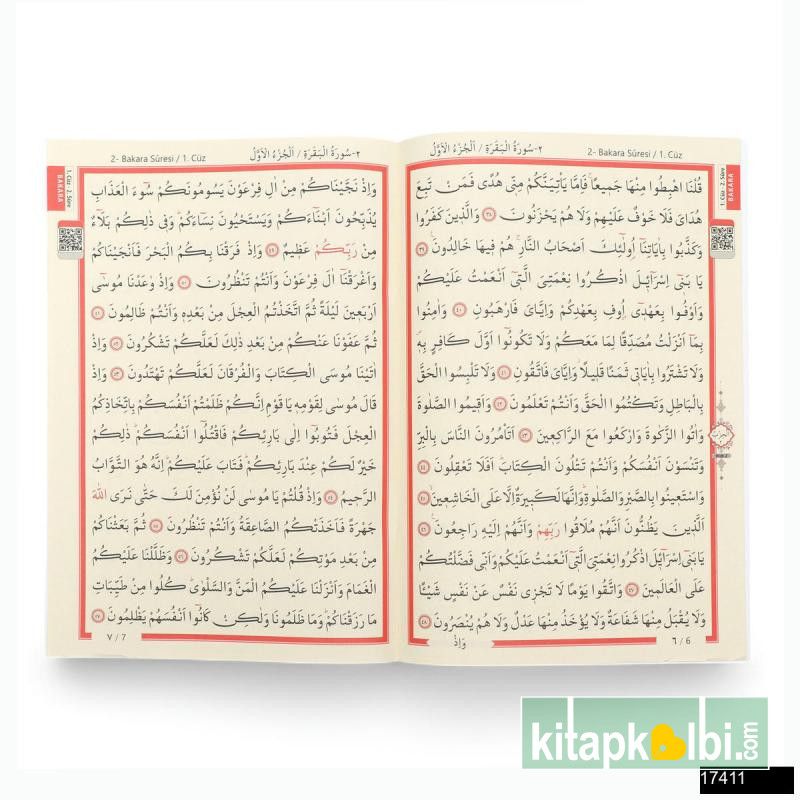 2- Bakara Sûresi / 1. Cüz
٢-سُورَةُ الْبَقَرَةِ / اَلْجُزْءُ الْاَوَّلُ
قُلْنَا اهْبِطُوا مِنْهَا جَمٖيعاًۚ فَاِمَّا يَأْتِيَنَّكُمْ مِنّٖى هُدًى فَمَنْ تَبِعَ
هُدَاىَ فَلَا خَوْفٌ عَلَيْهِمْ وَلَا هُمْ يَحْزَنُونَ ٣٨ وَالَّذٖينَ كَفَرُوا
وَكَذَّبُوا بِاٰيَاتِنَٓا اُو۬لٰٓئِكَ اَصْحَابُ النَّارِۚ هُمْ فٖيهَا خَالِدُونَ ٣٩
يَا بَنٖٓى اِسْرَٓائٖلَ اذْكُرُوا نِعْمَتِىَ الَّتٖٓى اَنْعَمْتُ عَلَيْكُمْ
وَاَوْفُوا بِعَهْدٖٓى اُو۫فِ بِعَهْدِكُمْ وَاِيَّاىَ فَارْهَبُونِ ٤٠ وَاٰمِنُوا
بِمَٓا اَنْزَلْتُ مُصَدِّقاً لِمَا مَعَكُمْ وَلَا تَكُونُٓوا اَوَّلَ كَافِرٍ بِهٖۖ
وَلَا تَشْتَرُوا بِاٰيَاتٖى ثَمَناً قَلٖيلاًۘ وَاِيَّاىَ فَاتَّقُونِ ٤١ وَلَا تَلْبِسُوا الْحَقَّ
بِالْبَاطِلِ وَتَكْتُمُوا الْحَقَّ وَاَنْتُمْ تَعْلَمُونَ ٤٢ وَاَقٖيمُوا الصَّلٰوةَ
وَاٰتُوا الزَّكٰوةَ وَارْكَعُوا مَعَ الرَّاكِعٖينَ ٤٣ اَتَأْمُرُونَ النَّاسَ بِالْبِرِّ
وَتَنْسَوْنَ اَنْفُسَكُمْ وَاَنْتُمْ تَتْلُونَ الْكِتَابَۜ اَفَلَا تَعْقِلُونَ ٤٤
وَاسْتَعٖينُوا بِالصَّبْرِ وَالصَّلٰوةِۜ وَاِنَّهَا لَكَبٖيرَةٌ اِلَّا عَلَى الْخَاشِعٖينَۙ ٤٥
اَلَّذٖينَ يَظُنُّونَ اَنَّهُمْ مُلَاقُوا رَبِّهِمْ وَاَنَّهُمْ اِلَيْهِ رَاجِعُونَ ٤٦
يَا بَنٖٓى اِسْرَٓائٖلَ اذْكُرُوا نِعْمَتِىَ الَّتٖٓى اَنْعَمْتُ عَلَيْكُمْ وَاَنّٖى فَضَّلْتُكُمْ
عَلَى الْعَالَمٖينَ ٤٧ وَاتَّقُوا يَوْماً لَا تَجْزٖى نَفْسٌ عَنْ نَفْسٍ شَيْـٔاً
وَلَا يُقْبَلُ مِنْهَا شَفَاعَةٌ وَلَا يُؤْخَذُ مِنْهَا عَدْلٌ وَلَا هُمْ يُنْصَرُونَ ٤٨
٦ / 6
وَاِذْ
1. Cüz - 2. Sûre
BAKARA
2- Bakara Sûresi / 1. Cüz
٢-سُورَةُ الْبَقَرَةِ / اَلْجُزْءُ الْاَوَّلُ
وَاِذْ نَجَّيْنَاكُمْ مِنْ اٰلِ فِرْعَوْنَ يَسُومُونَكُمْ سُٓوءَ الْعَذَابِ
يُذَبِّحُونَ اَبْنَٓاءَكُمْ وَيَسْتَحْيُونَ نِسَٓاءَكُمْۜ وَفٖى ذٰلِكُمْ بَلَٓاءٌ
مِنْ رَبِّكُمْ عَظٖيمٌ ٤٩ وَاِذْ فَرَقْنَا بِكُمُ الْبَحْرَ فَاَنْجَيْنَاكُمْ
وَاَغْرَقْنَٓا اٰلَ فِرْعَوْنَ وَاَنْتُمْ تَنْظُرُونَ ٥٠ وَاِذْ وٰعَدْنَا مُوسٰٓى
اَرْبَعٖينَ لَيْلَةً ثُمَّ اتَّخَذْتُمُ الْعِجْلَ مِنْ بَعْدِهٖ وَاَنْتُمْ ظَالِمُونَ ٥١
ثُمَّ عَفَوْنَا عَنْكُمْ مِنْ بَعْدِ ذٰلِكَ لَعَلَّكُمْ تَشْكُرُونَ ٥٢ وَاِذْ
اٰتَيْنَا مُوسَى الْكِتَابَ وَالْفُرْقَانَ لَعَلَّكُمْ تَهْتَدُونَ ٥٣ وَاِذْ
قَالَ مُوسٰى لِقَوْمِهٖ يَا قَوْمِ اِنَّكُمْ ظَلَمْتُمْ اَنْفُسَكُمْ بِاتِّخَاذِكُمُ
الْعِجْلَ فَتُوبُٓوا اِلٰى بَارِئِكُمْ فَاقْتُلُٓوا اَنْفُسَكُمْۜ ذٰلِكُمْ
خَيْرٌ لَكُمْ عِنْدَ بَارِئِكُمْۜ فَتَابَ عَلَيْكُمْۜ اِنَّهُ هُوَ التَّوَّابُ
الرَّحٖيمُ ٥٤ وَاِذْ قُلْتُمْ يَا مُوسٰى لَنْ نُؤْمِنَ لَكَ حَتّٰى نَرَى اللّٰهَ
جَهْرَةً فَاَخَذَتْكُمُ الصَّاعِقَةُ وَاَنْتُمْ تَنْظُرُونَ ٥٥ ثُمَّ بَعَثْنَاكُمْ
مِنْ بَعْدِ مَوْتِكُمْ لَعَلَّكُمْ تَشْكُرُونَ ٥٦ وَظَلَّلْنَا عَلَيْكُمُ
الْغَمَامَ وَاَنْزَلْنَا عَلَيْكُمُ الْمَنَّ وَالسَّلْوٰىۜ كُلُوا مِنْ طَيِّبَاتِ
مَا رَزَقْنَاكُمْۜ وَمَا ظَلَمُونَا وَلٰكِنْ كَانُٓوا اَنْفُسَهُمْ يَظْلِمُونَ ٥٧
٧ / 7
1. Cüz - 2. Sûre
BAKARA
kitapkalbi.com
17411